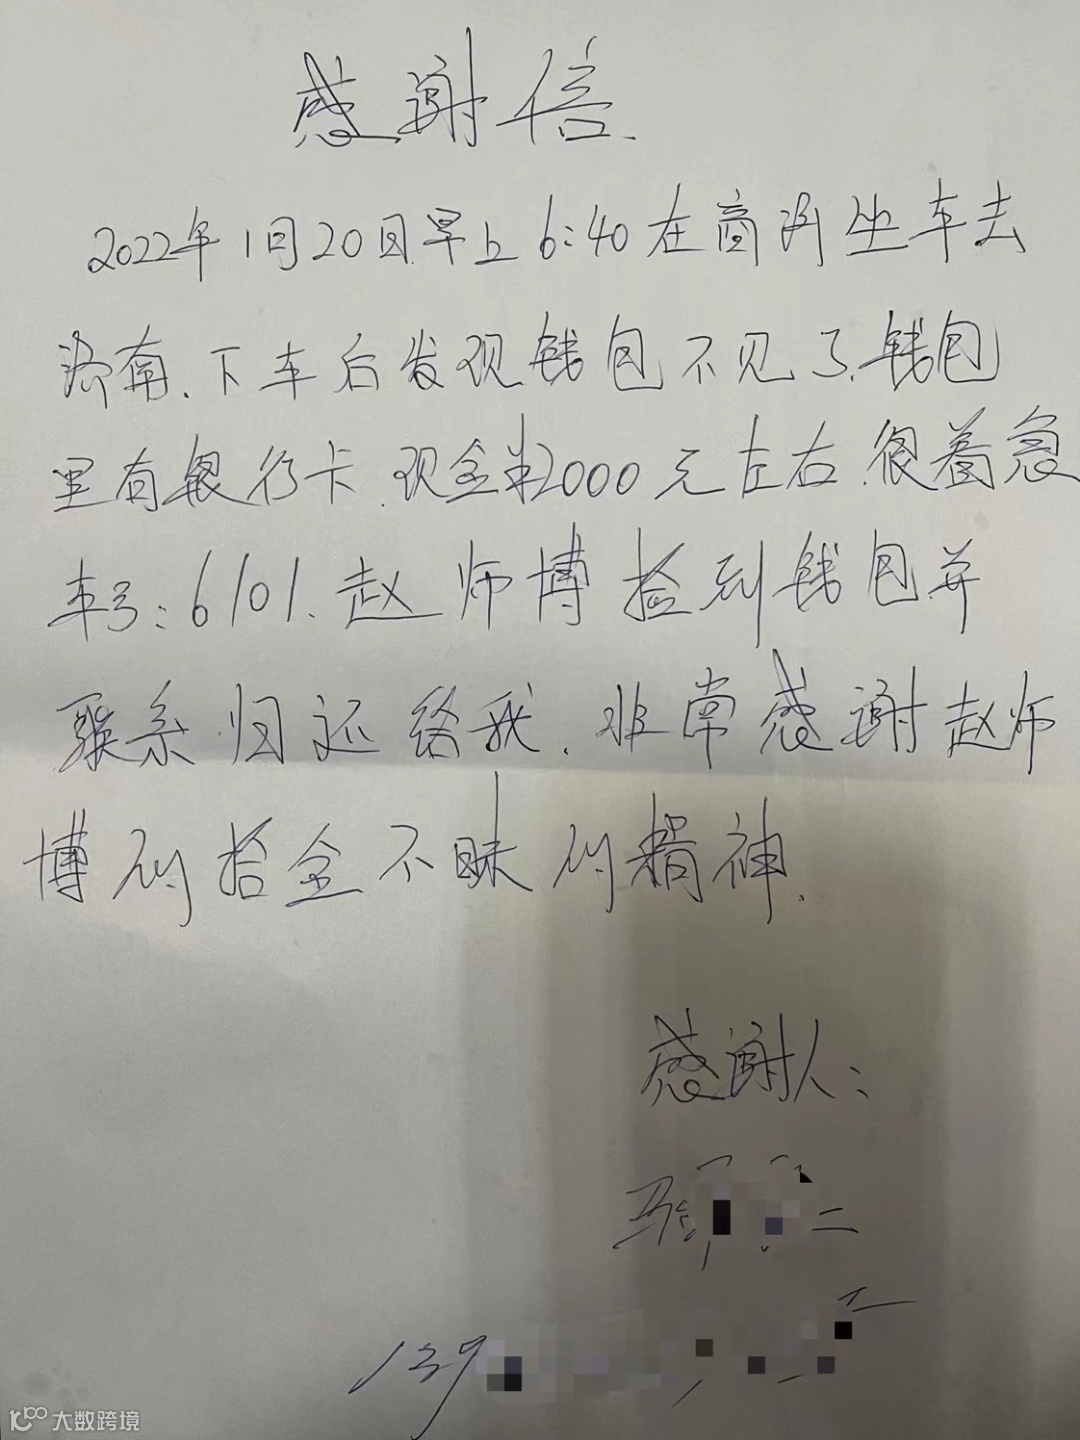 感谢信.
2022年1月20日早上6:40在商河坐车去
济南.下车后发现钱包不见了.钱包
里有银行卡.现金2000元左右.很着急
车号:6101.赵师博捡到钱包并
联系归还给我.非常感谢赵师
博的拾金不昧的精神.
感谢人:
139
大数跨境